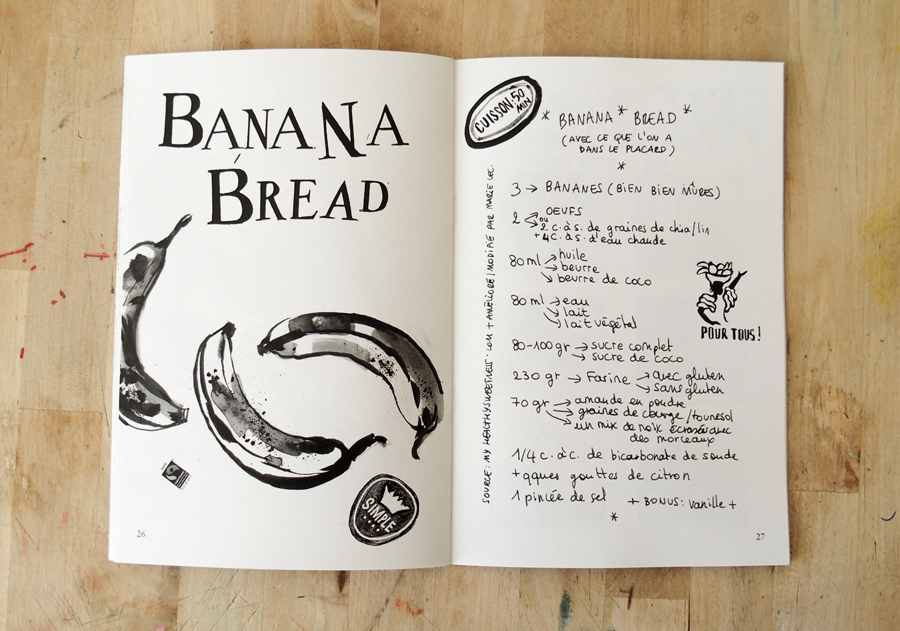 BANANA
BREAD
SIMPLE
26
CUISSON: 50
MIN
* BANANA * BREAD *
(AVEC CE QUE L'ON A
DANS LE PLACARD)
*
3 → BANANES (BIEN BIEN MÛRES)
2 → OEUFS
ou
→ 2 c.à.s. de graines de chia/lin
+ 4 c.à.s. d'eau chaude
80 ml → huile
→ beurre
→ beurre de coco
80 ml → eau
→ lait
→ lait végétal
80-100 gr → sucre complet
→ sucre de coco
230 gr → Farine → avec gluten
→ sans gluten
70 gr → amande en poudre
→ graines de courge/tournesol
→ un mix de noix écrasé avec
des morceaux
1/4 c.à.c. de bicarbonate de soude
+ qques gouttes de citron
1 pincée de sel + BONUS: vanille +
*
POUR TOUS!
SOURCE: MY HEALTHYSWEETNESS.COM + AMÉLIORÉ/MODIFIÉ PAR MARIE
27